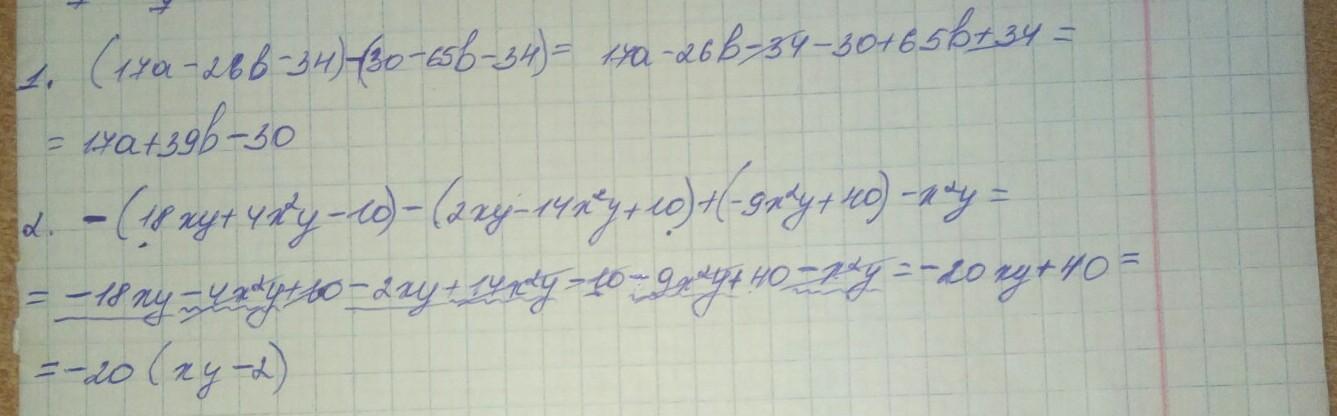 1. (17a-26b-34)-(30-65b-34)= 17a-26b-34-30+65b+34=
= 17a+39b-30
2. -(18xy+4x²y-10)-(2xy-14x²y+10)+(-9x²y+40)-x²y=
= -18xy-4x²y+10-2xy+14x²y-10-9x²y+40-x²y=-20xy+40=
=-20(xy-2)